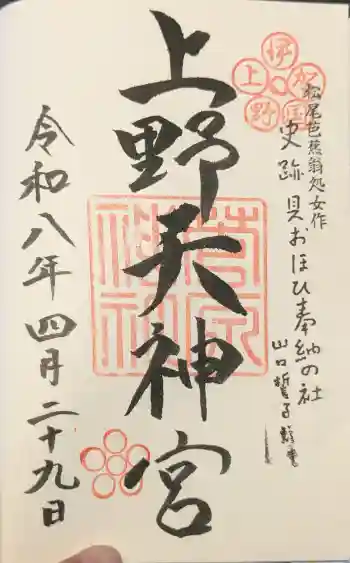 伊賀国上野
松尾芭蕉翁処女作
史跡 貝おほひ奉納の社
山口誓子
上野天神宮
令和八年四月二十九日